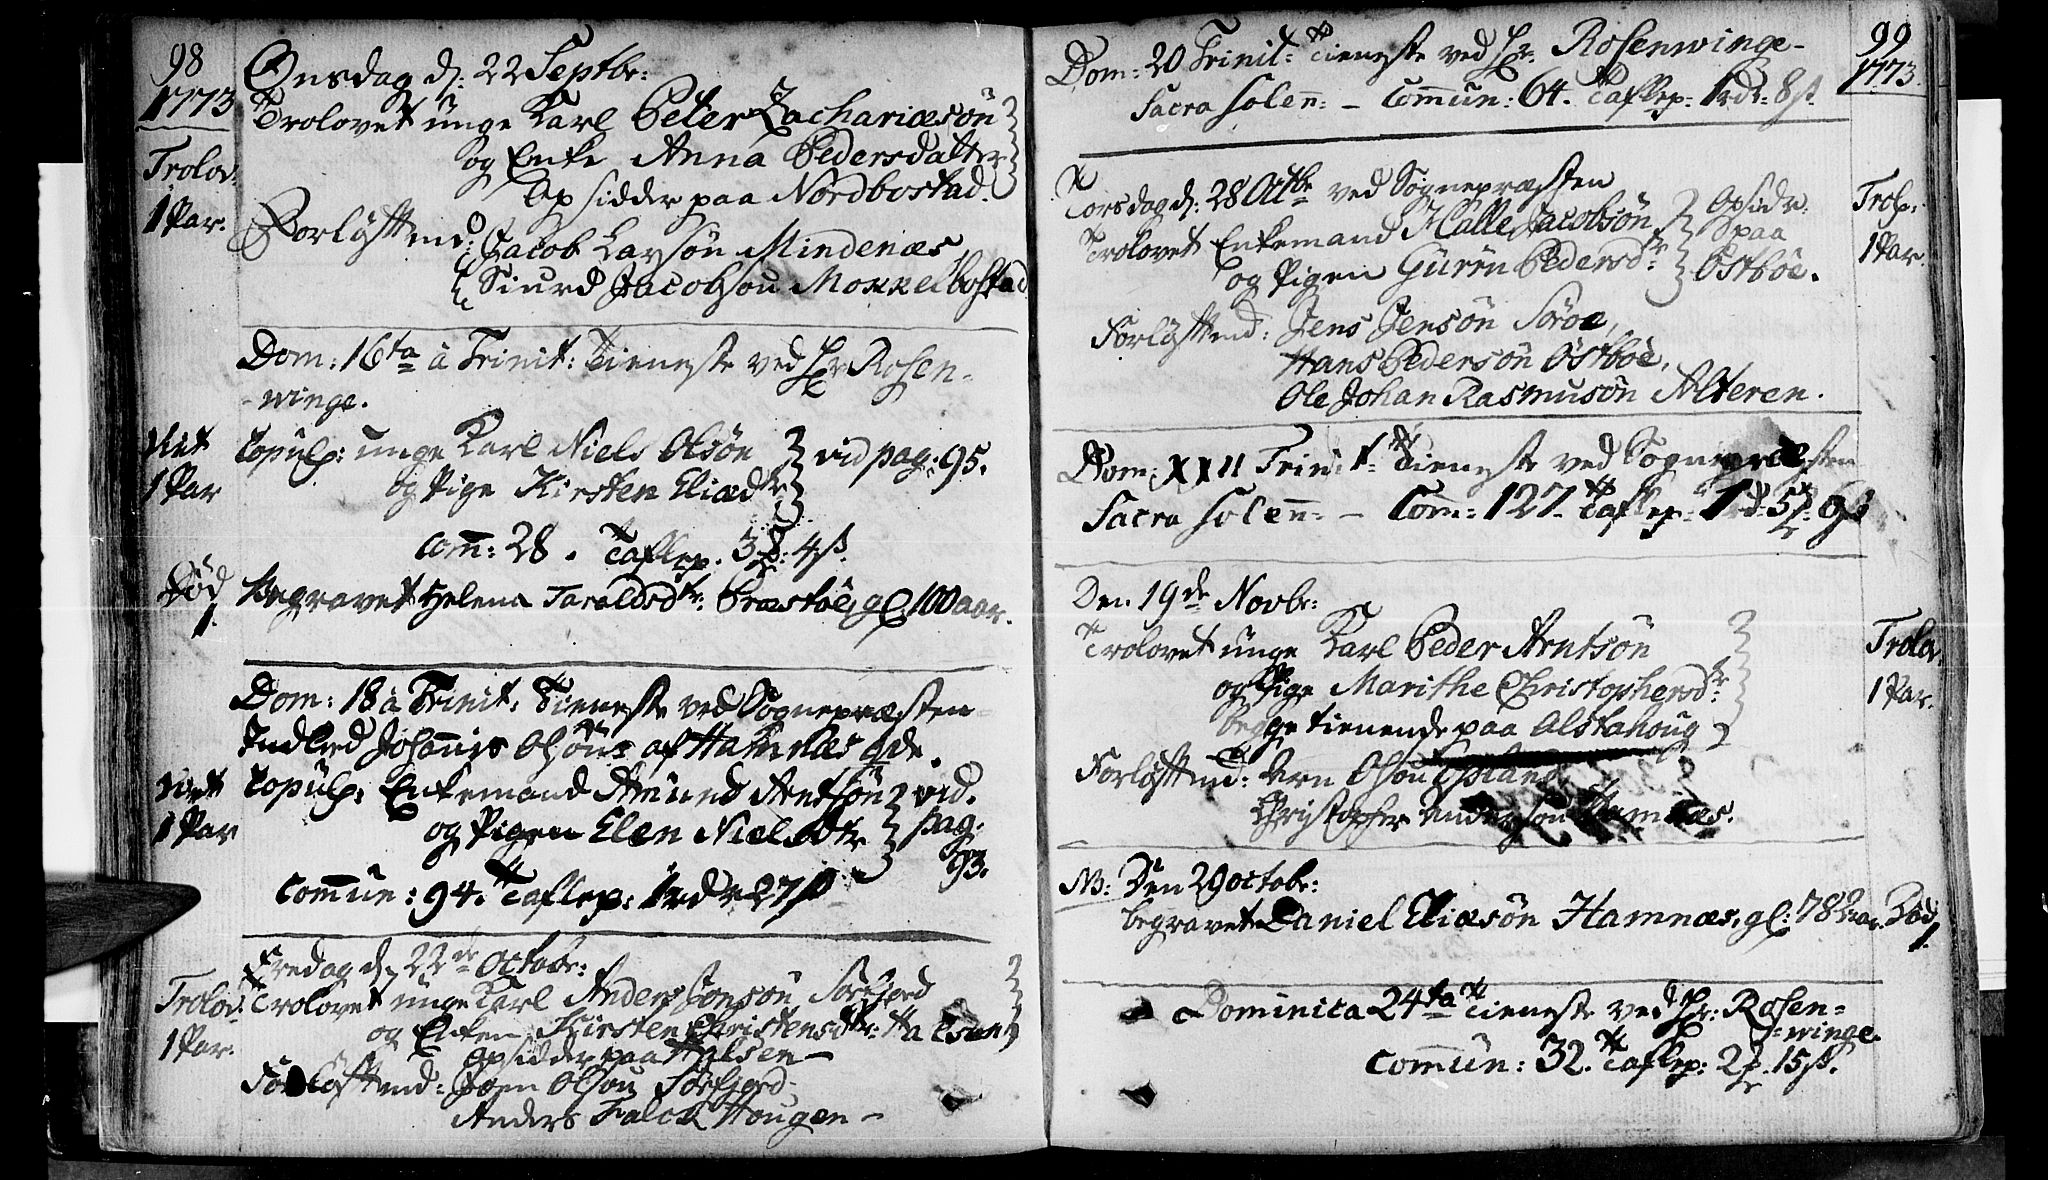 98
1773
Onsdag d: 22 Septbr:
Trolovet unge Karl Peter Zachariæsøn
og Enke Anna Pedersdatter
Opsidder paa Nordbostad.
Trolov:
1 Par.
Forløftmd: Jacob Larsøn Mindenæs
Siurd Jacobsøn Mokkelbostad
Dom: 16ta à Trinit: Tieneste ved Hr Rosen-
-winge.
Viet
1 Par
Copul: unge Karl Niels Olsøn
og Pige Kirsten Eliædtr
vid pag: 95.
Com: 28. Taflep. 3 ℔: 4 ß.
Død
1.
Begravet Helena Taraldsdtr: Præstøe, gl. 100 aar.
Dom: 18 à Trinit: Tieneste ved Sognepræsten
Indled Johannis Olsøns af Hamnæs qde.
Viet
1 Par
Copul: Enkemand Amund Arntsøn
og Pigen Elen Nielsdtr
vid.
pag.
93.
Commun: 94. Taflep: 1 rdr 27 ß
Fredag d. 22de Octobr:
Trolov:
1 Par.
Trolovet unge Karl Anders Jonsøn Sørfjord
og Enken Kirsten Christensdtr: Halsen
Opsidder paa Halsen –
Forløftmd: Joen Olsøn Sørfjord
Anders Falck Hougen –
99
1773.
Dom: 20 Trinit: Tieneste ved Hr: Rosenwinge-
Sacra solen: – Commun: 64. Taflep: 1 rdr: 8 ß.
Torsdag d: 28 Octbr ved Sognepræsten
Trolovet Enkemand Halle Jacobsøn
og Pigen Gurün Pedersdr
Opsidr
paa
Østbøe.
Trol:
1 Par.
Forløftmd: Jens Jensøn Sørøe,
Hans Pedersøn Østbøe,
Ole Johan Rasmusøn Alteren.
Dom: XXII Trinit: Tieneste ved Sognepræsten
Sacra solen: – Com: 127. Taflep: 1 rd: 5 ℔: 6 ß
Den 19de Novbr:
Trolovet unge Karl Peder Arntsøn
og Pige Marithe Christophersdr
begge tienende paa Alstahoug
Trolov.
1 Par.
Forløftmd: Arn Olsøn
Christopher Andersøn Hamnæs.
NB: Den 29 octobr:
begravet Daniel Eliæsøn Hamnæs, gl: 78 aar.
Død
1.
Dominica 24ta Tieneste ved Hr: Rosen-
-winge.
Commun: 32. Taflep: 2 ℔. 15 ß.